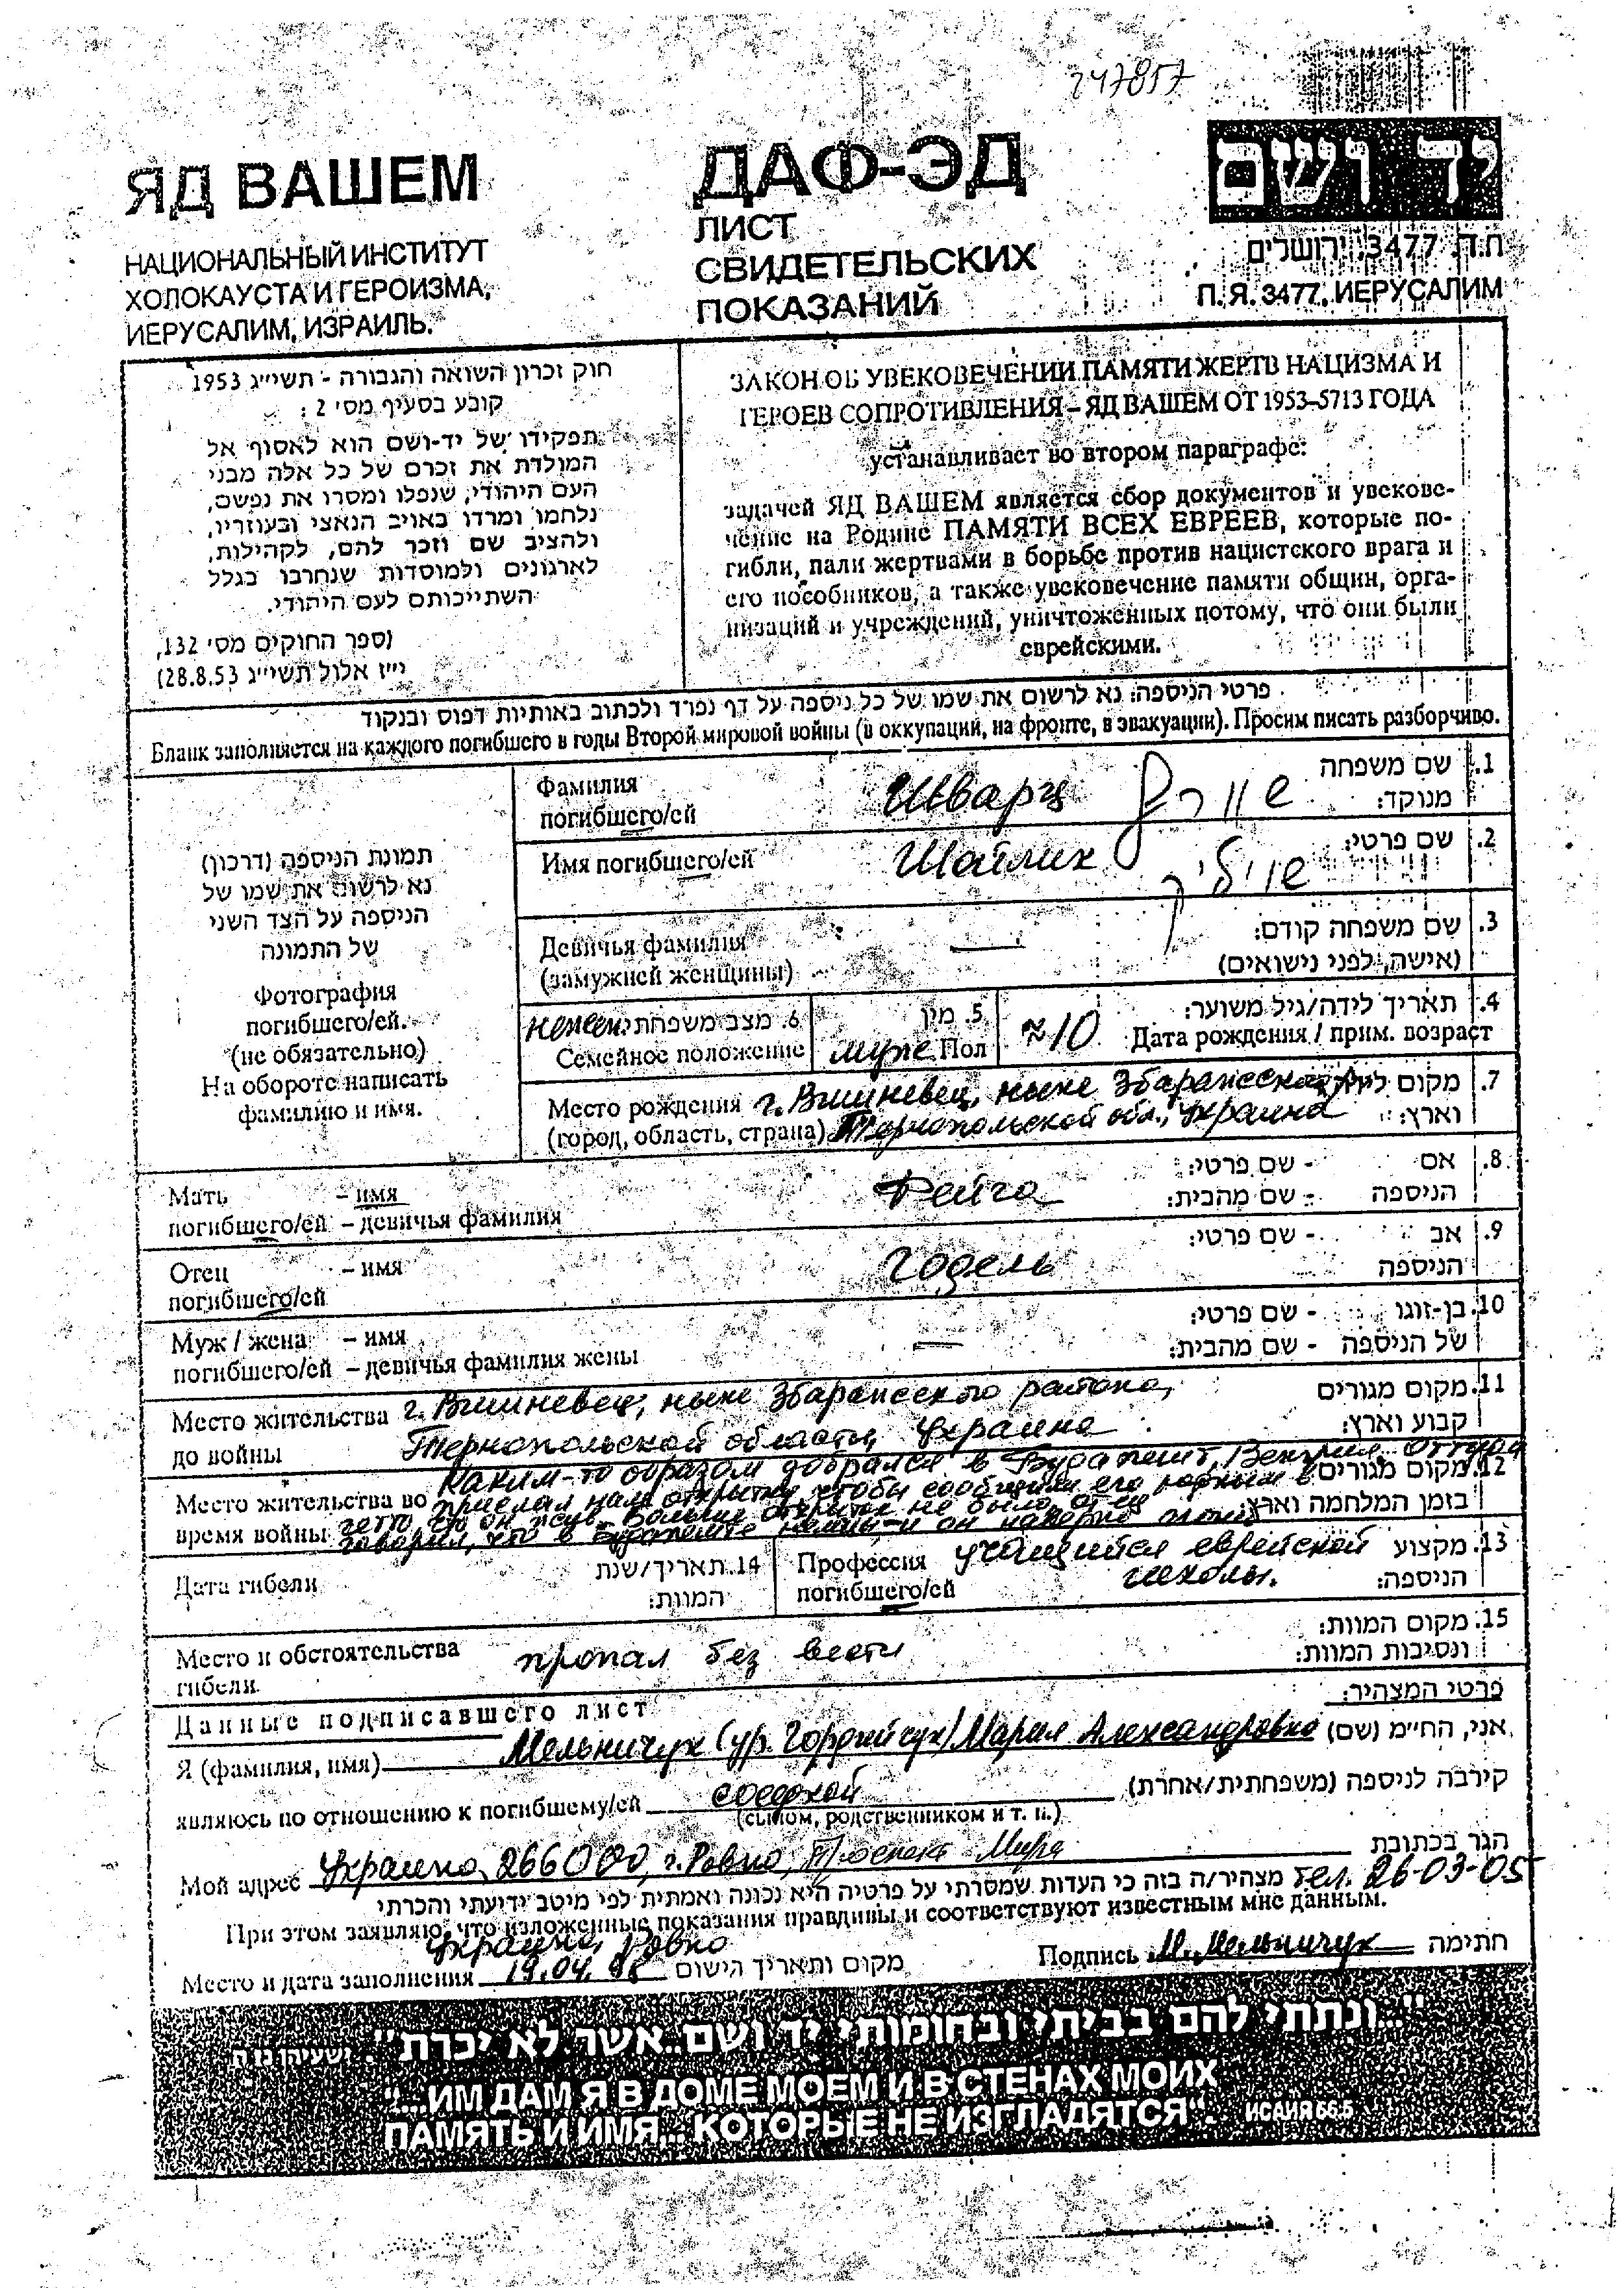 247857
ЯД ВАШЕМ
НАЦИОНАЛЬНЫЙ ИНСТИТУТ
ХОЛОКАУСТА И ГЕРОИЗМА,
ИЕРУСАЛИМ, ИЗРАИЛЬ.
ДАФ-ЭД
ЛИСТ
СВИДЕТЕЛЬСКИХ
ПОКАЗАНИЙ
יד ושם
ת.ד. 3477, ירושלים
П. Я. 3477, ИЕРУСАЛИМ
חוק זכרון השואה והגבורה - תשי״ג 1953
קובע בסעיף מס׳ 2:
תפקידו של יד-ושם הוא לאסוף אל
המולדת את זכרם של כל אלה מבני
העם היהודי, שנפלו ומסרו את נפשם,
נלחמו ומרדו באויב הנאצי ובעוזריו,
ולהציב שם וזכר להם, לקהילות,
לארגונים ולמוסדות שנחרבו בגלל
השתייכותם לעם היהודי.
(ספר החוקים מס׳ 132,
י״ז אלול תשי״ג 28.8.53)
ЗАКОН ОБ УВЕКОВЕЧЕНИИ ПАМЯТИ ЖЕРТВ НАЦИЗМА И
ГЕРОЕВ СОПРОТИВЛЕНИЯ – ЯД ВАШЕМ ОТ 1953-5713 ГОДА
устанавливает во втором параграфе:
задачей ЯД ВАШЕМ является сбор документов и увекове-
чение на Родине ПАМЯТИ ВСЕХ ЕВРЕЕВ, которые по-
гибли, пали жертвами в борьбе против нацистского врага и
его пособников, а также увековечение памяти общин, орга-
низаций и учреждений, уничтоженных потому, что они были
еврейскими.
פרטי הניספה: נא לרשום את שמו של כל ניספה על דף נפרד ולכתוב באותיות דפוס ובנקוד
Бланк заполняется на каждого погибшего в годы Второй мировой войны (в оккупации, на фронте, в эвакуации). Просим писать разборчиво.
תמונת הניספה (דרכון)
נא לרשום את שמו של
הניספה על הצד השני
של התמונה
Фотография
погибшего/ей.
(не обязательно)
На обороте написать
фамилию и имя.
Фамилия погибшего/ей Шварц שוורץ 1. שם משפחה מנוקד:
Имя погибшего/ей Шайлик שיילק 2. שם פרטי:
Девичья фамилия — 3. שם משפחה קודם:
(замужней женщины) (אישה, לפני נישואים)
нежен. 6. מצב משפחתי 5. מין 4. תאריך לידה/גיל משוער:
Семейное положение муж Пол ≈10 Дата рождения / прим. возраст
Место рождения г. Вишневец, ныне Збаражского р. 7. מקום לידה
(город, область, страна) Тернопольской обл., Украина וארץ:
Мать – имя Фейга 8. אם - שם פרטי:
погибшего/ей – девичья фамилия הניספה - שם מהבית:
Отец – имя Годель 9. אב - שם פרטי:
погибшего/ей הניספה
Муж / жена – имя — 10. בן-זוגו - שם פרטי:
погибшего/ей – девичья фамилия жены של הניספה - שם מהבית:
Место жительства г. Вишневец, ныне Збаражского района, 11. מקום מגורים
до войны Тернопольской области, Украина קבוע וארץ:
Каким-то образом добрался в Будапешт, Венгрия. Оттуда
Место жительства во прислал нам открытку, чтобы сообщили его родным в 12. מקום מגורים
время войны гетто, что он жив. Больше открыток не было, отец בזמן המלחמה וארץ:
говорил, что в Будапеште немцы, и он наверно погиб
Дата гибели 14. תאריך/שנת המוות: Профессия учащийся еврейской 13. מקצוע
погибшего/ей школы. הניספה:
Место и обстоятельства пропал без вести 15. מקום המוות:
гибели ונסיבות המוות:
Данные подписавшего лист פרטי המצהיר:
Я (фамилия, имя) Мельничук (ур. Гордийчук) Мария Александровна אני, החי״מ (שם)
являюсь по отношению к погибшему/ей соседкой קירבה לניספה (משפחתית/אחרת)
(сыном, родственником и т. п.)
Мой адрес Украина, 266000, г. Ровно, Проспект Мира הגר בכתובת
тел. 26-03-05 מצהיר/ה בזה כי העדות שמסרתי על פרטיה היא נכונה ואמתית לפי מיטב ידיעתי והכרתי
При этом заявляю, что изложенные показания правдивы и соответствуют известным мне данным.
Украина, Ровно
Место и дата заполнения 19.04.98 מקום ותאריך הישום Подпись М. Мельничук חתימה
"...ונתתי להם בביתי ובחומותי יד ושם...אשר לא יכרת" ישעיהו נו ה
"...ИМ ДАМ Я В ДОМЕ МОЕМ И В СТЕНАХ МОИХ
ПАМЯТЬ И ИМЯ... КОТОРЫЕ НЕ ИЗГЛАДЯТСЯ". ИСАИЯ 56:5